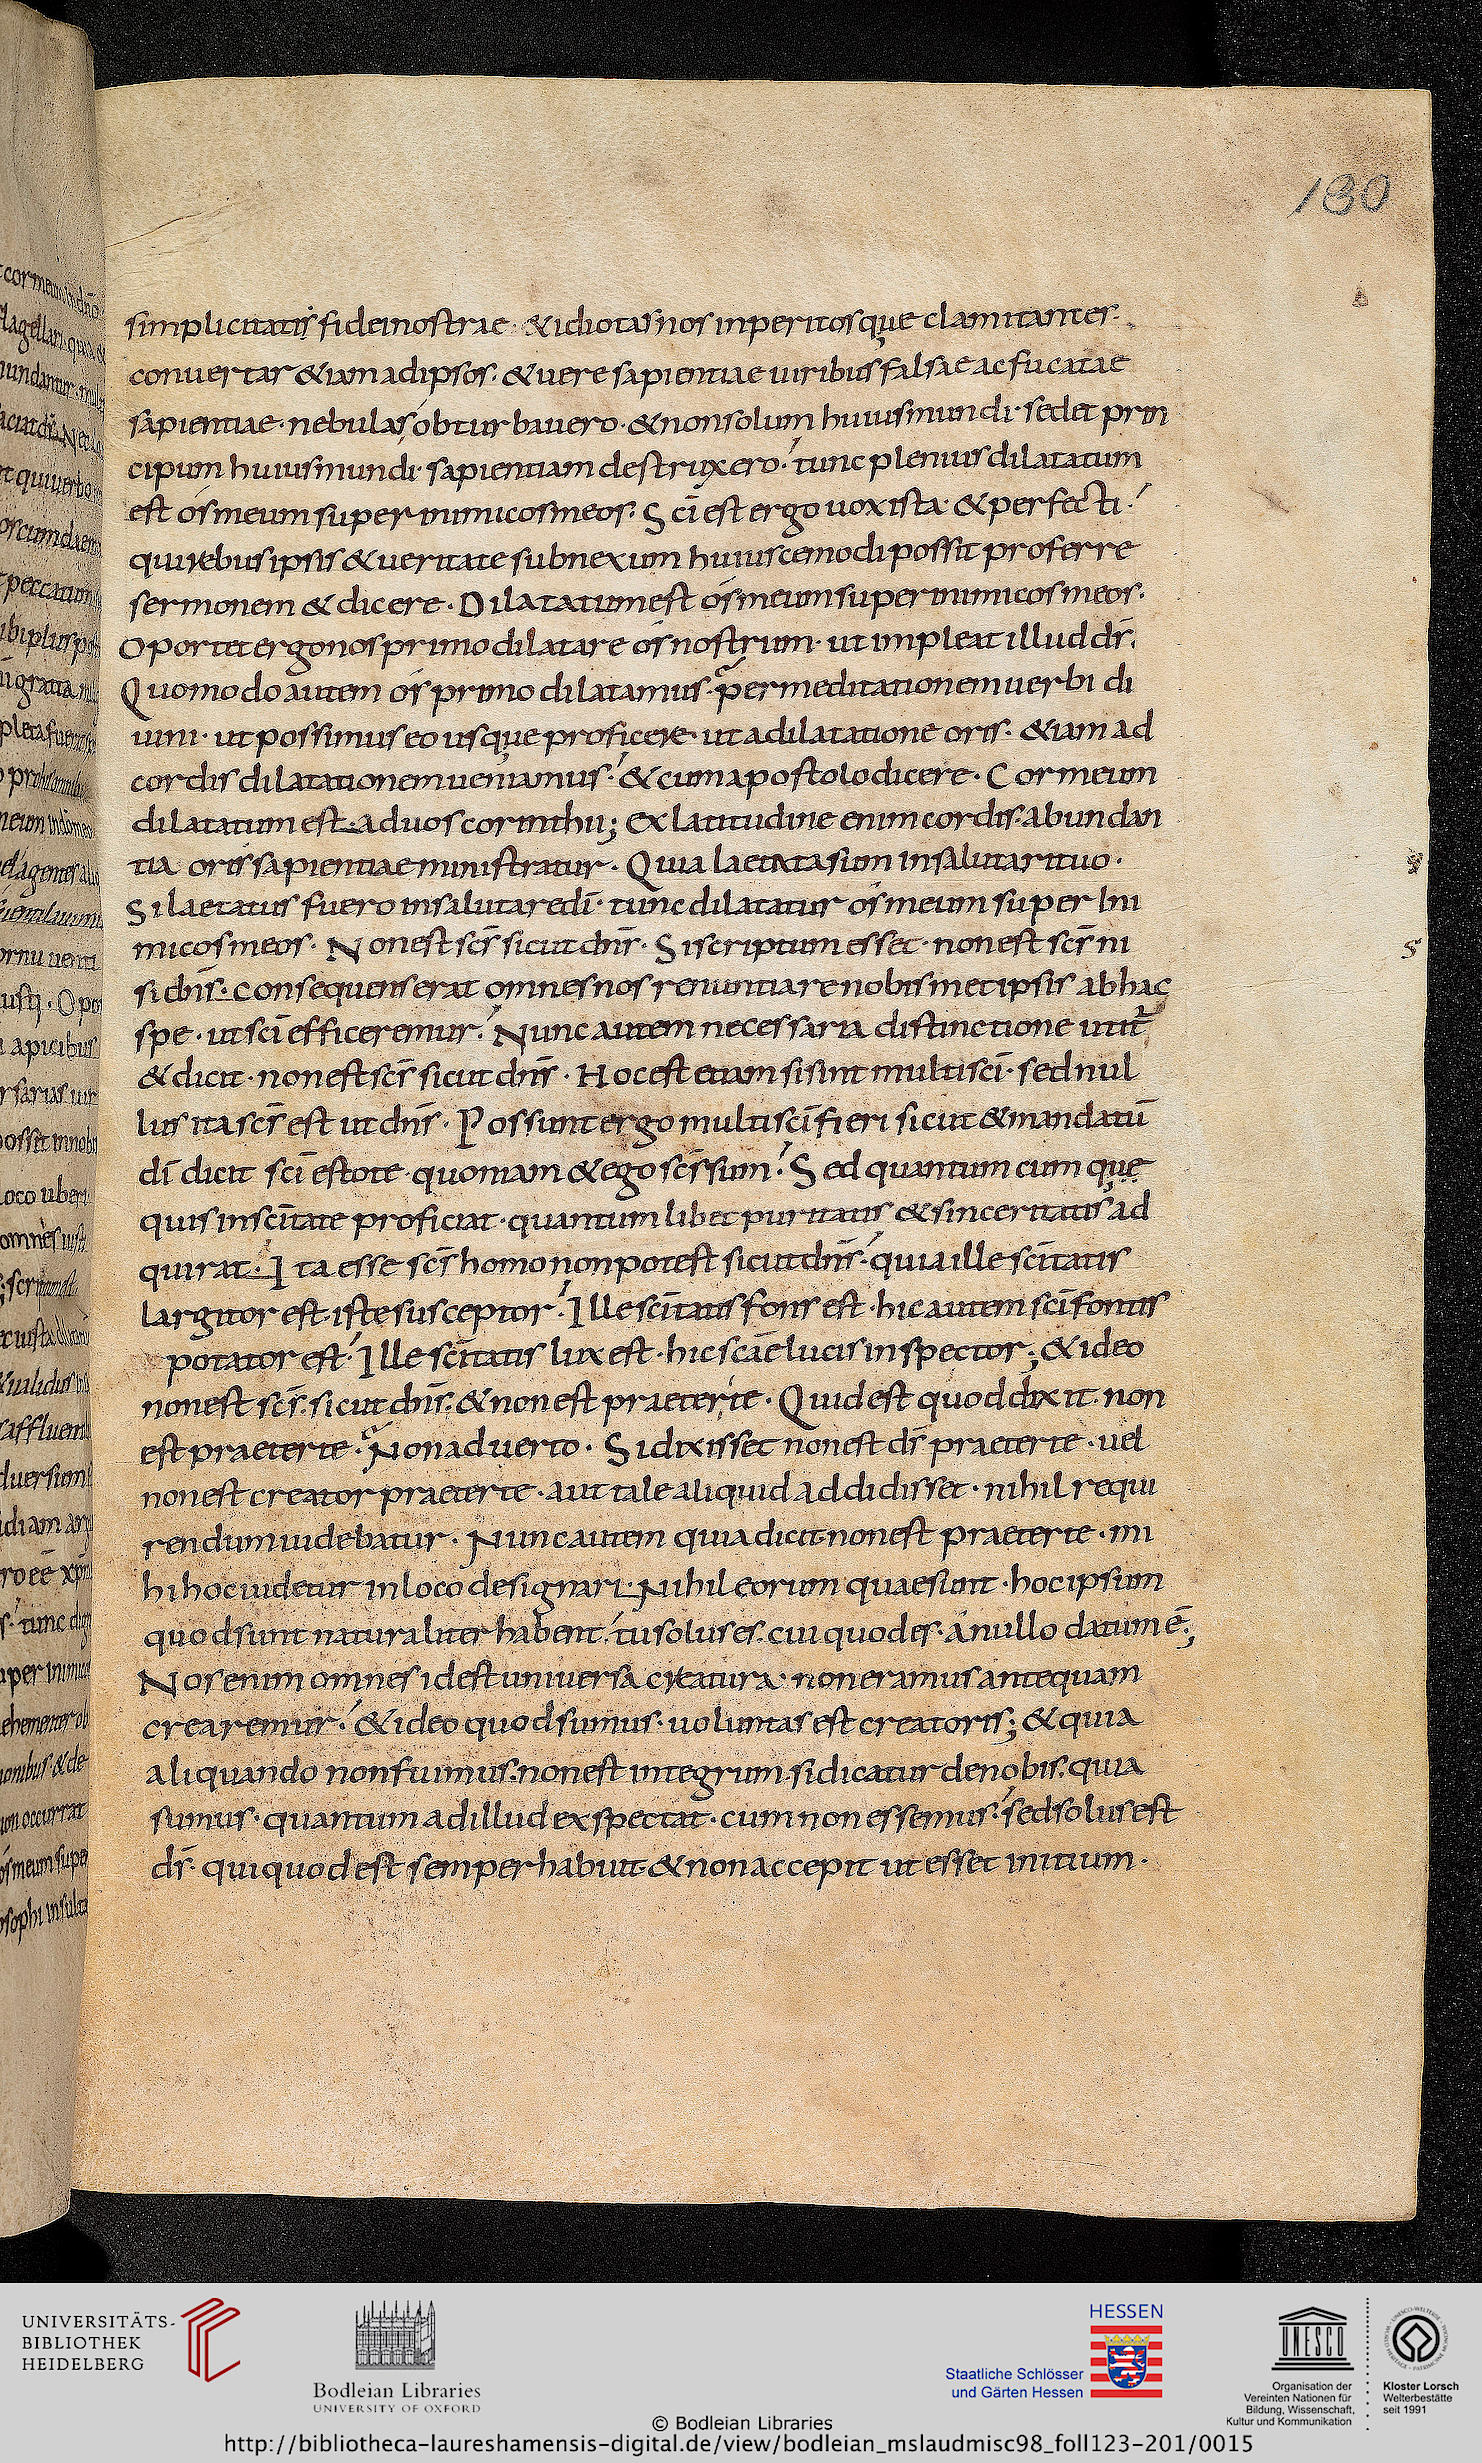 130
simplicitatis fidei nostrae · & idiotas nos inperitosque clamitantes ·
convertar & iam ad ipsos · & vere sapientiae viribus falsae ac fucatae
sapientiae · nebulas obturbavero · & non solum huius mundi · sed et prin
cipum huius mundi · sapientiam destruxero · tunc plenius dilatatum
est os meum super inimicos meos · Sci est ergo vox ista · & perfecti ·
qui rebus ipsis & veritate subnexum huiuscemodi possit proferre
sermonem & dicere · Dilatatum est os meum super inimicos meos ·
Oportet ergo nos primo dilatare os nostrum · ut impleat illud ds̄.
Quomodo autem os primo dilatamus · per meditationem uerbi di
uini · ut possimus eo usque proficere · ut a dilatatione oris · & iam ad
cordis dilatationem ueniamus · & cum apostolo dicere · Cor meum
dilatatum est · ad uos corinthii; ex latitudine enim cordis · abundan
tia oris sapientiae ministratur · Quia laetata sum in salutari tuo ·
Si laetatus fuero in salutare dī · tunc dilatatur os meum super Ini
micos meos · Non est scs̄ sicut dns̄ · Si scriptum esset · non est scs̄ ni
si dns̄ · consequens erat omnes nos renuntiare nobismetipsis ab hac
spe · ut scī efficeremur · Nunc autem necessaria distinctione utit̄
& dicit · non est scs̄ sicut dns̄ · Hoc est etiam si sint multi scī · sed nul
lus ita scs̄ est ut dns̄ · Possunt ergo multi scī fieri sicut & mandatū
dī dicit scī estote · quoniam & ego scs̄ sum · Sed quantumcumque
quis in scītate proficiat · quantum libet puritatis & sinceritatis ad
quirat · Ita esse scs̄ homo non potest sicut dns̄ · quia ille scītatis
largitor est · iste susceptor · Ille scītatis fons est · hic autem scī fontis
potator est · Ille scītatis lux est · hic scāe lucis inspector; & ideo
non est scs̄ · sicut dns̄ · & non est praeter te · Quid est quod dixit · non
est praeter te · Non adverto · Si dixisset non est ds̄ praeter te · uel
non est creator praeter te · aut tale aliquid addidisset · nihil requi
rendum uidebatur · Nunc autem quia dicit · non est praeter te · mi
hi hoc uidetur in loco designari · Nihil eorum quae sunt · hoc ipsum
quod sunt naturaliter habent · tu solus es · cui quod es · a nullo datum ē;
Nos enim omnes id est uniuersa creatura · non eramus antequam
crearemur · & ideo quod sumus · uoluntas est creatoris; & quia
aliquando non fuimus · non est integrum · si dicatur de nobis · quia
sumus · quantum ad illud exspectat · cum non essemus · sed solus est
ds̄ · qui quod est semper habuit · & non accepit ut esset initium ·
UNIVERSITÄTS-
BIBLIOTHEK
HEIDELBERG
Bodleian Libraries
UNIVERSITY OF OXFORD
HESSEN
Staatliche Schlösser
und Gärten Hessen
UNESCO
Organisation der
Vereinten Nationen für
Bildung, Wissenschaft,
Kultur und Kommunikation
Kloster Lorsch
Welterbestätte
seit 1991
© Bodleian Libraries
http://bibliotheca-laureshamensis-digital.de/view/bodleian_mslaudmisc98_foll123-201/0015